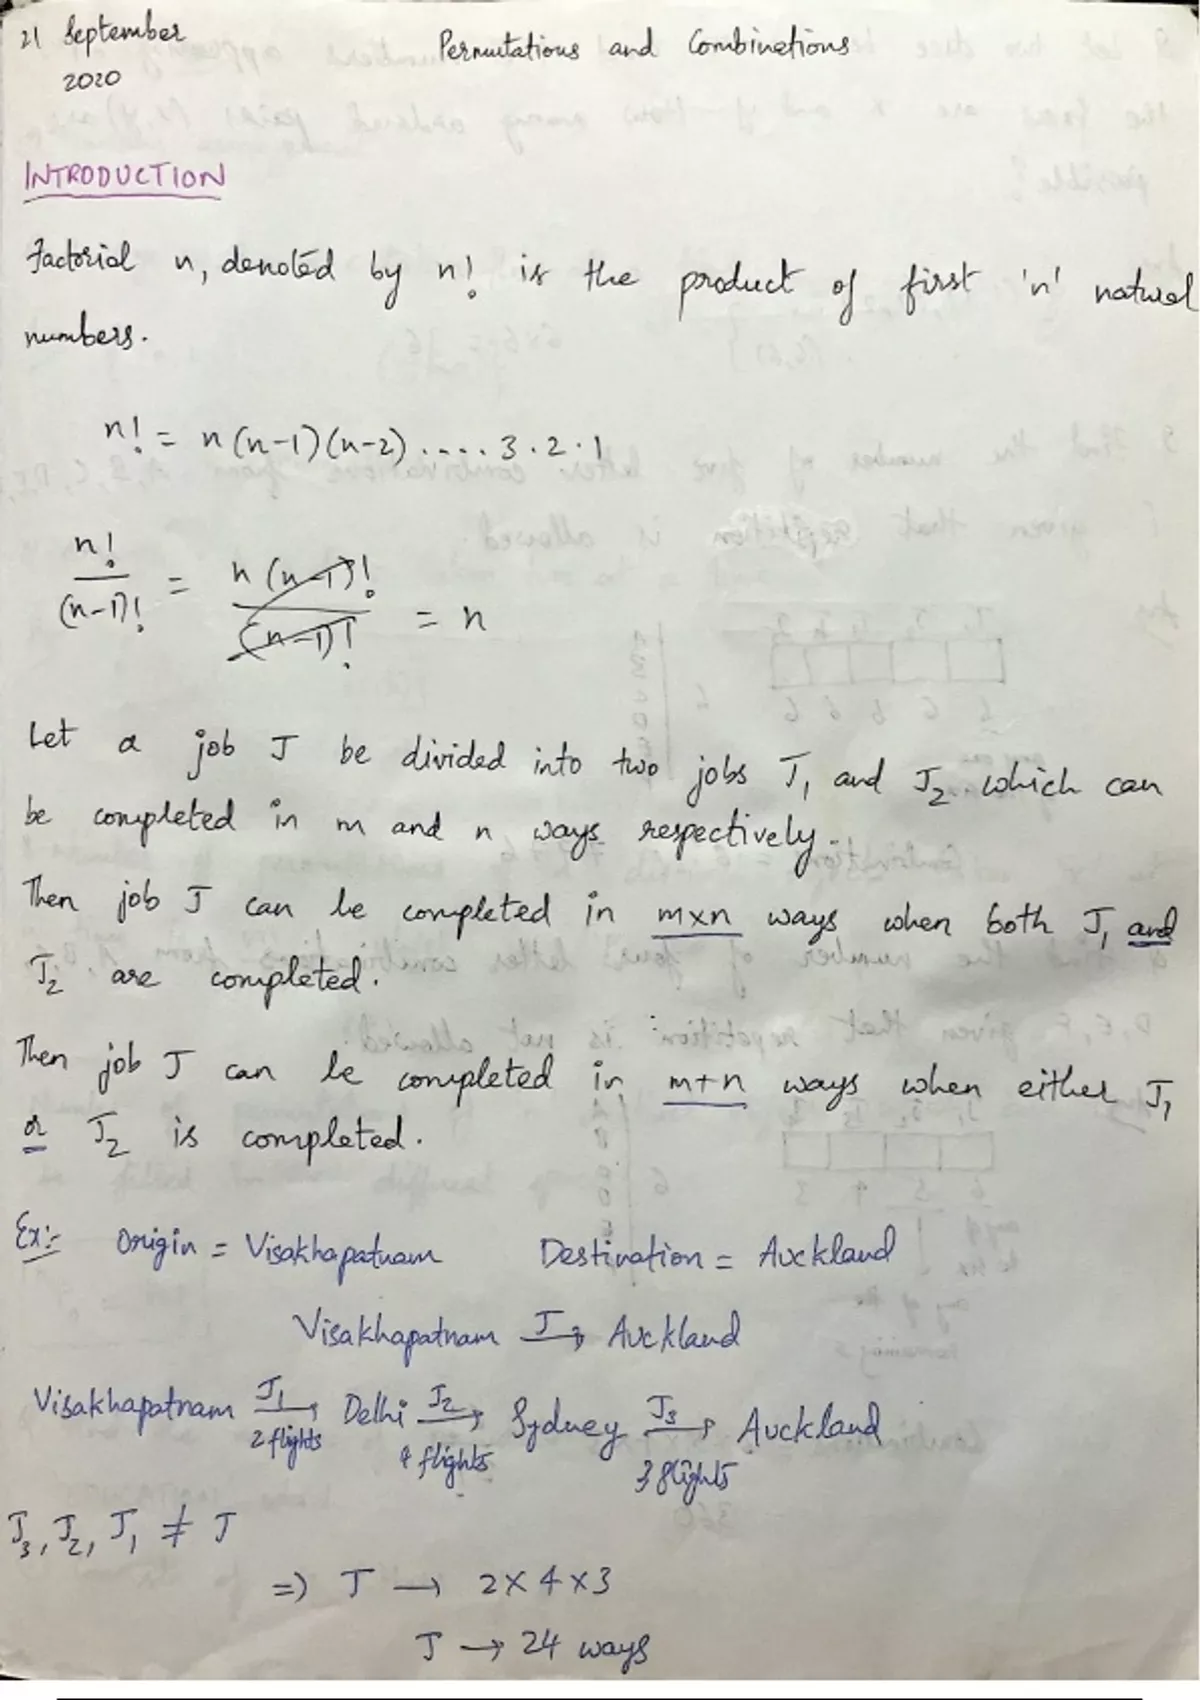 21 September Permutations and Combinations
2020
INTRODUCTION
Factorial n, denoted by n! is the product of first 'n' natural
numbers.
n! = n(n-1)(n-2)....3.2.1
n!/(n-1)! = n(n-1)!/(n-1)! = n
Let a job J be divided into two jobs J₁ and J₂ which can
be completed in m and n ways respectively.
Then job J can be completed in m×n ways when both J₁ and
J₂ are completed.
Then job J can be completed in m+n ways when either J₁
or J₂ is completed.
Ex:- Origin = Visakhapatnam Destination = Auckland
Visakhapatnam J→ Auckland
Visakhapatnam J₁→ Delhi J₂→ Sydney J₃→ Auckland
2 flights 4 flights 3 flights
J₃, J₂, J₁ ≠ J
=) J → 2×4×3
J → 24 ways